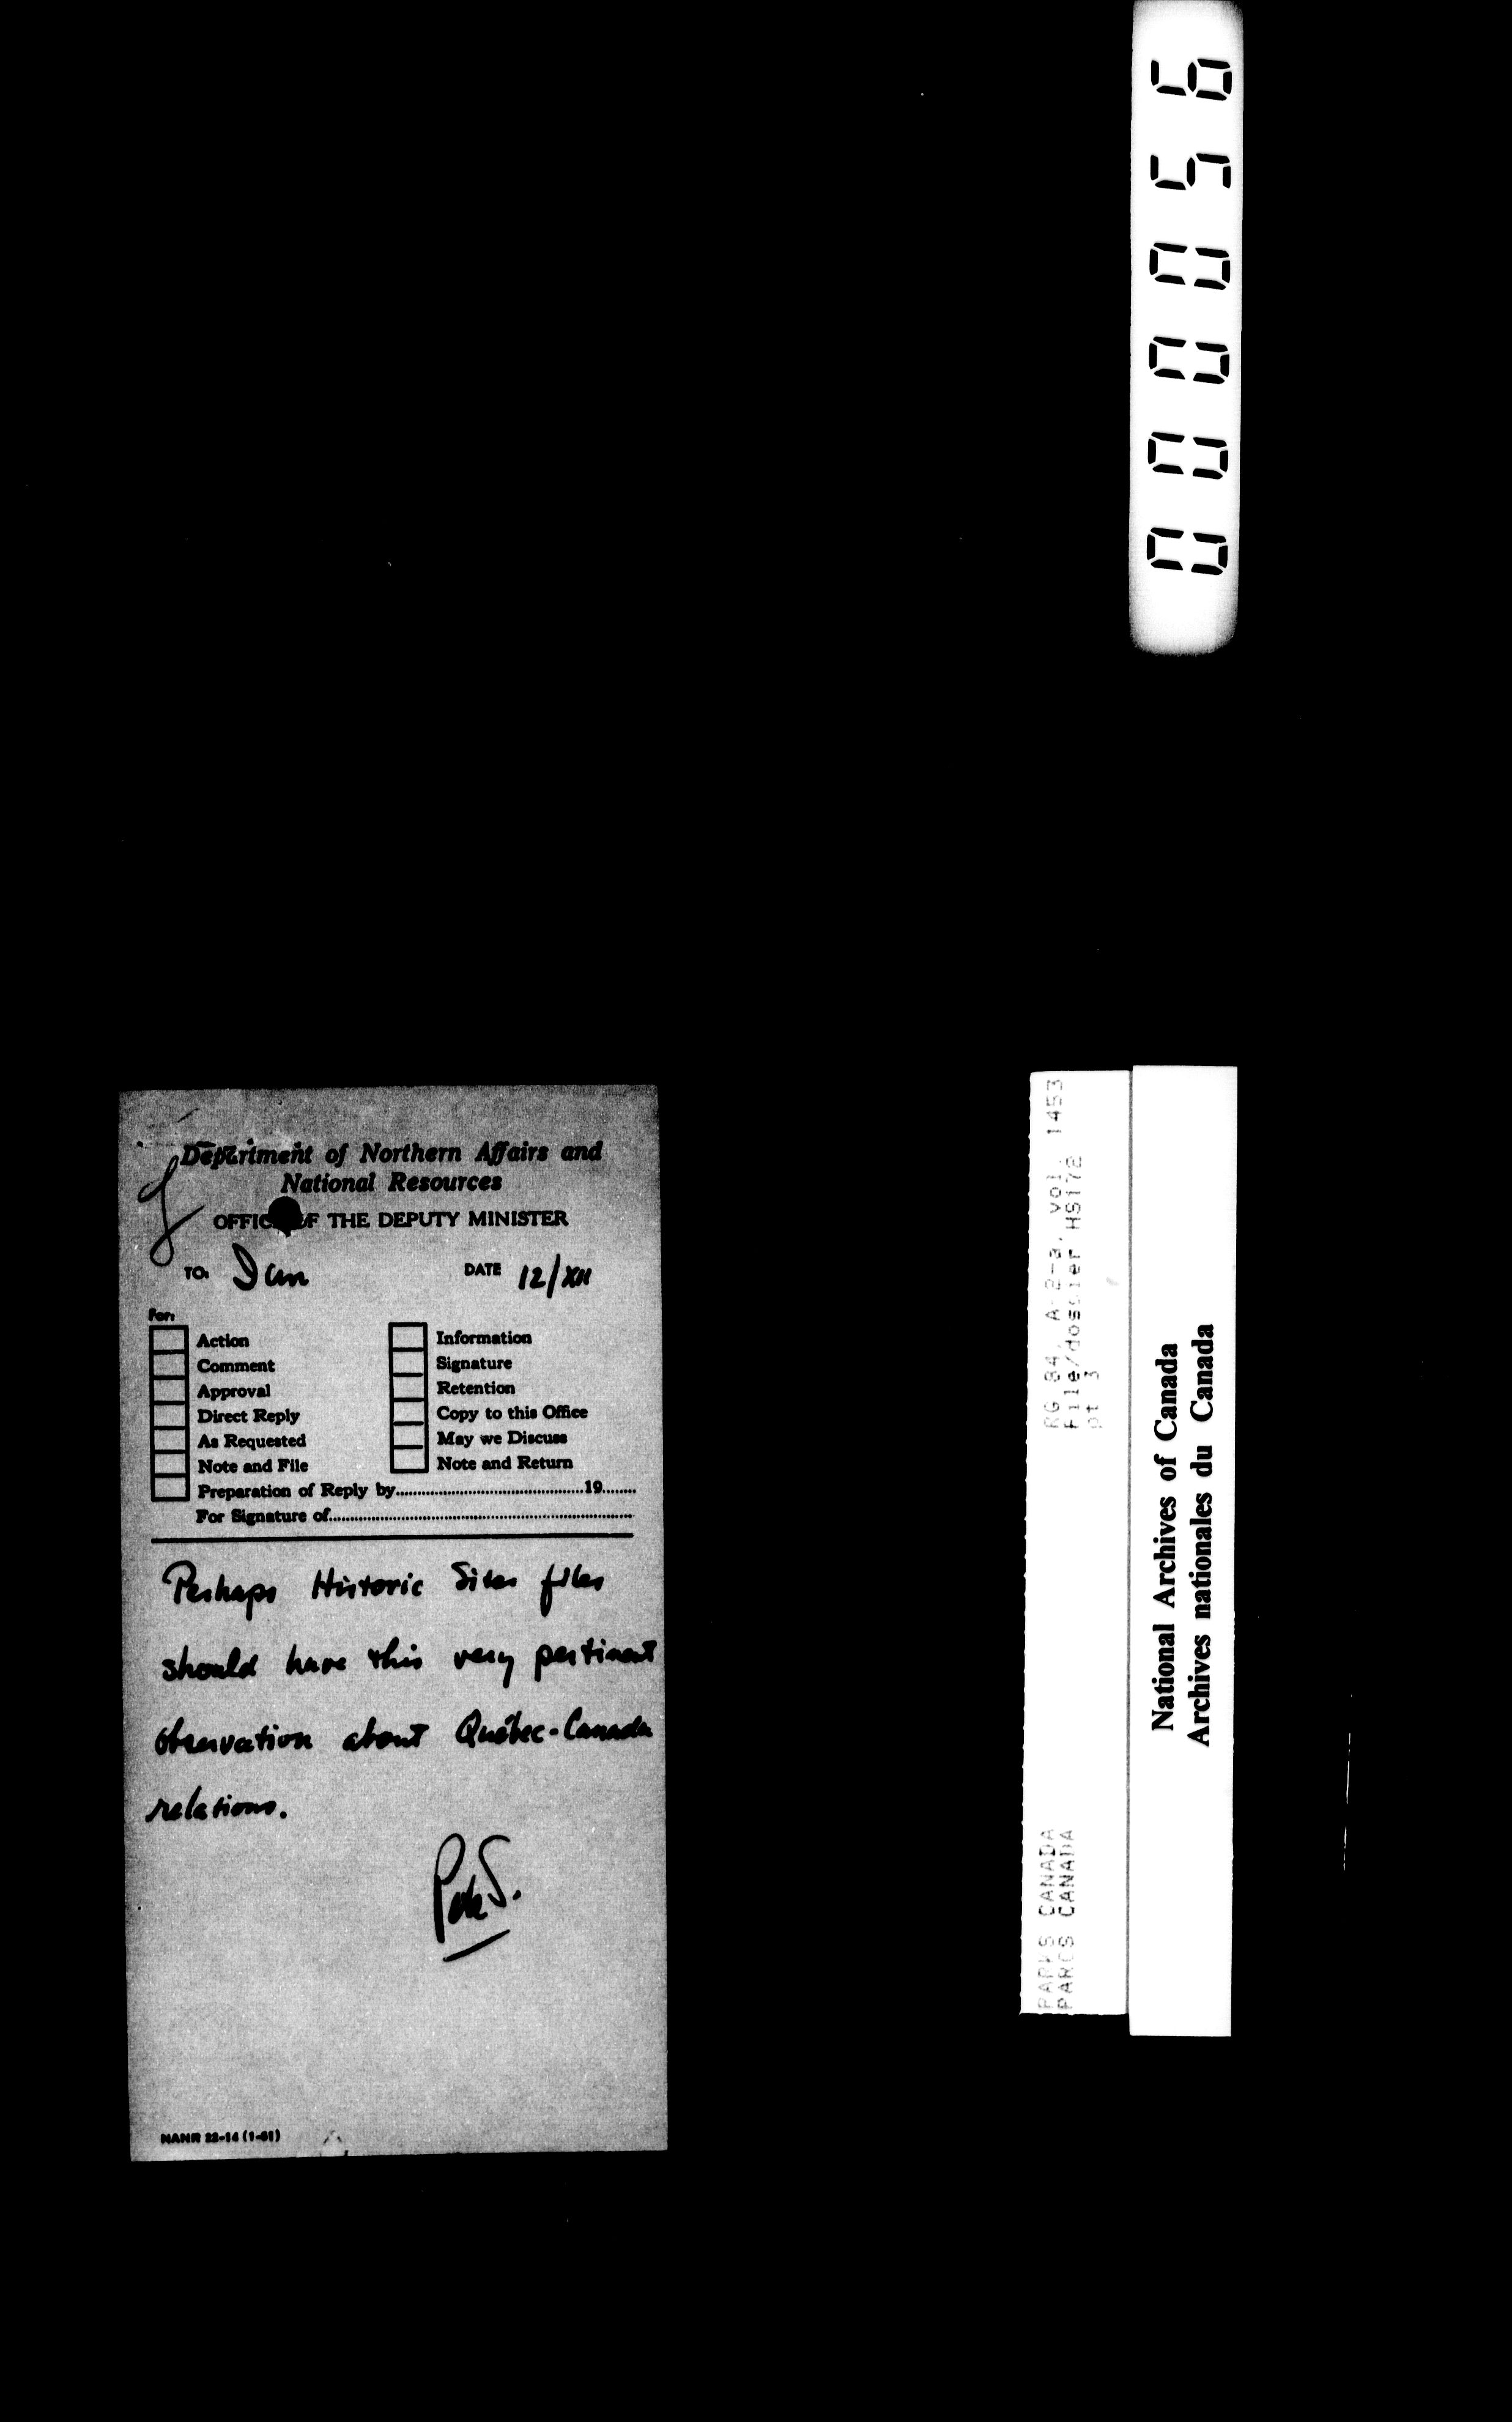 000056
Department of Northern Affairs and
National Resources
OFFICE OF THE DEPUTY MINISTER
TO: Ian DATE 12/XII
For:
Action
Comment
Approval
Direct Reply
As Requested
Note and File
Preparation of Reply by 19
For Signature of
Information
Signature
Retention
Copy to this Office
May we Discuss
Note and Return
Perhaps Historic Sites files
should have this very pertinent
observation about Québec-Canada
relations.
Pete S.
NANR 22-14 (1-61)
PARKS CANADA
PARCS CANADA
RG 84, A-2-a, vol. 1453
File/dossier HS172
pt 3
National Archives of Canada
Archives nationales du Canada